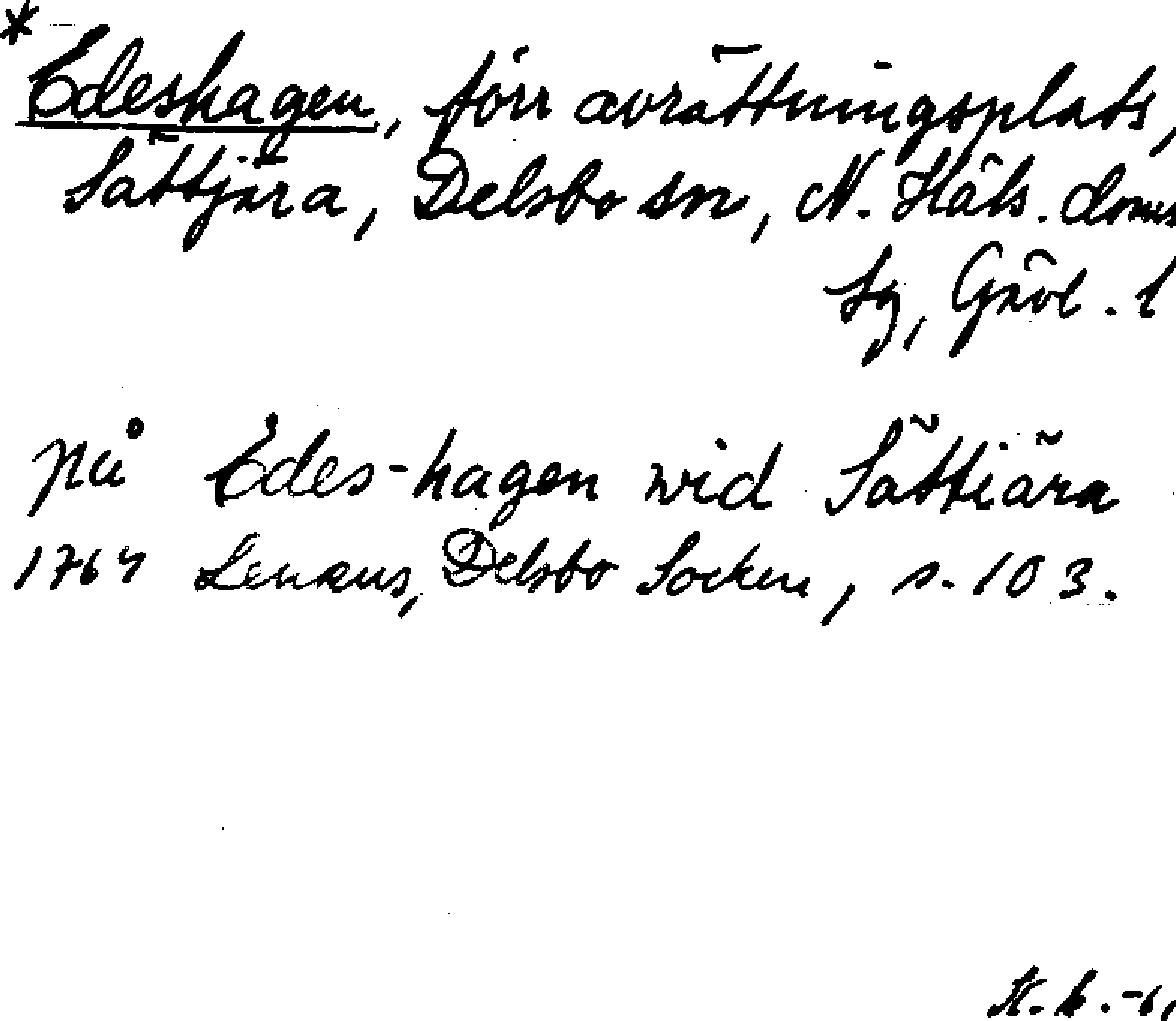 * Edeshagen, förr avrättningsplats,
Sättjära, Delsbo sn, N. Häls. doms
sg, Gävl. l
på Edes-hagen wid Sättiära
1764 Lenæus, Delsbo Socken, s. 103.